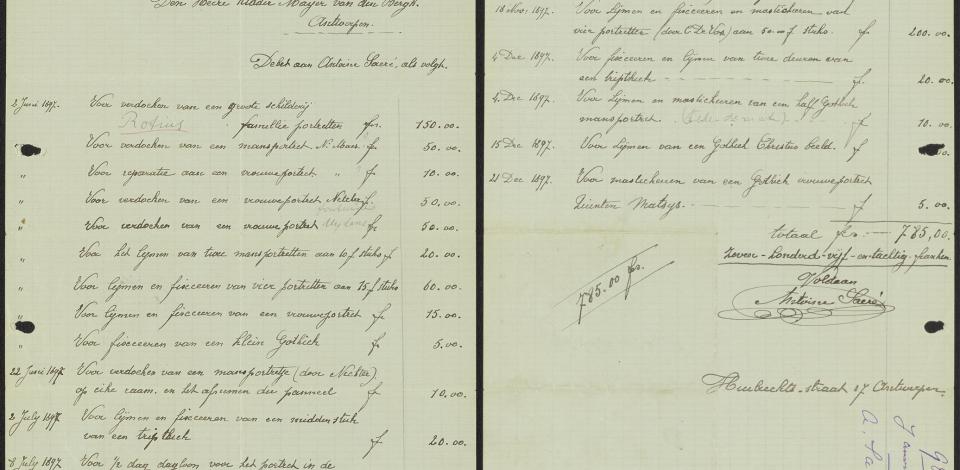 Den Heere Ridder Mayer van den Bergh.
Antwerpen.
Debet aan Antoine Sacré, als volgt.
2 Juni 1897. Voor verdoeken van een groote schilderij
Rotius familie portretten fr. 150.00.
" Voor verdoeken van een mansportret N. Maes. fr 50.00.
" Voor reparatie aan een vrouweportret " fr 10.00.
" Voor verdoeken van een vrouweportret fr. 50.00.
" Voor verdoeken van een vrouweportret Mytens fr. 50.00.
" Voor het lijmen van twee mansportretten aan 10 f stuks f 20.00.
" Voor lijmen en fixeeren van vier portretten aan 15 f stuks 60.00.
" Voor lijmen en fixeeren van een vrouweportret fr 15.00.
" Voor fixeeren van een klein Gothiek fr 5.00.
22 Juni 1897 Voor verdoeken van een mansportretje (door Netcher)
op eike raam, en het afnemen du panneel fr 10.00.
2 July 1897 Voor lijmen en fixeeren van een middenstuk
van een triptiek fr 20.00.
8 July 1897 Voor ½ dag dagloon voor het portret in de
18 Nov: 1897. Voor lijmen en fixeeren en mastickeeren van
vier portretten (door C. De Vos) aan 50.00 f stuks. fr. 200.00.
4 Dec 1897. Voor fixeeren en lijmen van twee deuren van
een triptiek fr 20.00.
4. Dec 1897. Voor lijmen en mastickeeren van een half Gothiek
mansportret. fr 10.00.
15 Dec 1897. Voor lijmen van een Gothiek Christus beeld. fr
21 Dec 1897. Voor mastickeeren van een Gothiek vrouweportret
Quinten Matsys. fr 5.00.
totaal frs. 785,00.
Zeven-honderd-vijf-en-tachtig-franken.
Voldaan
Antoine Sacré
785.00 frs.
straat 27 Antwerpen.